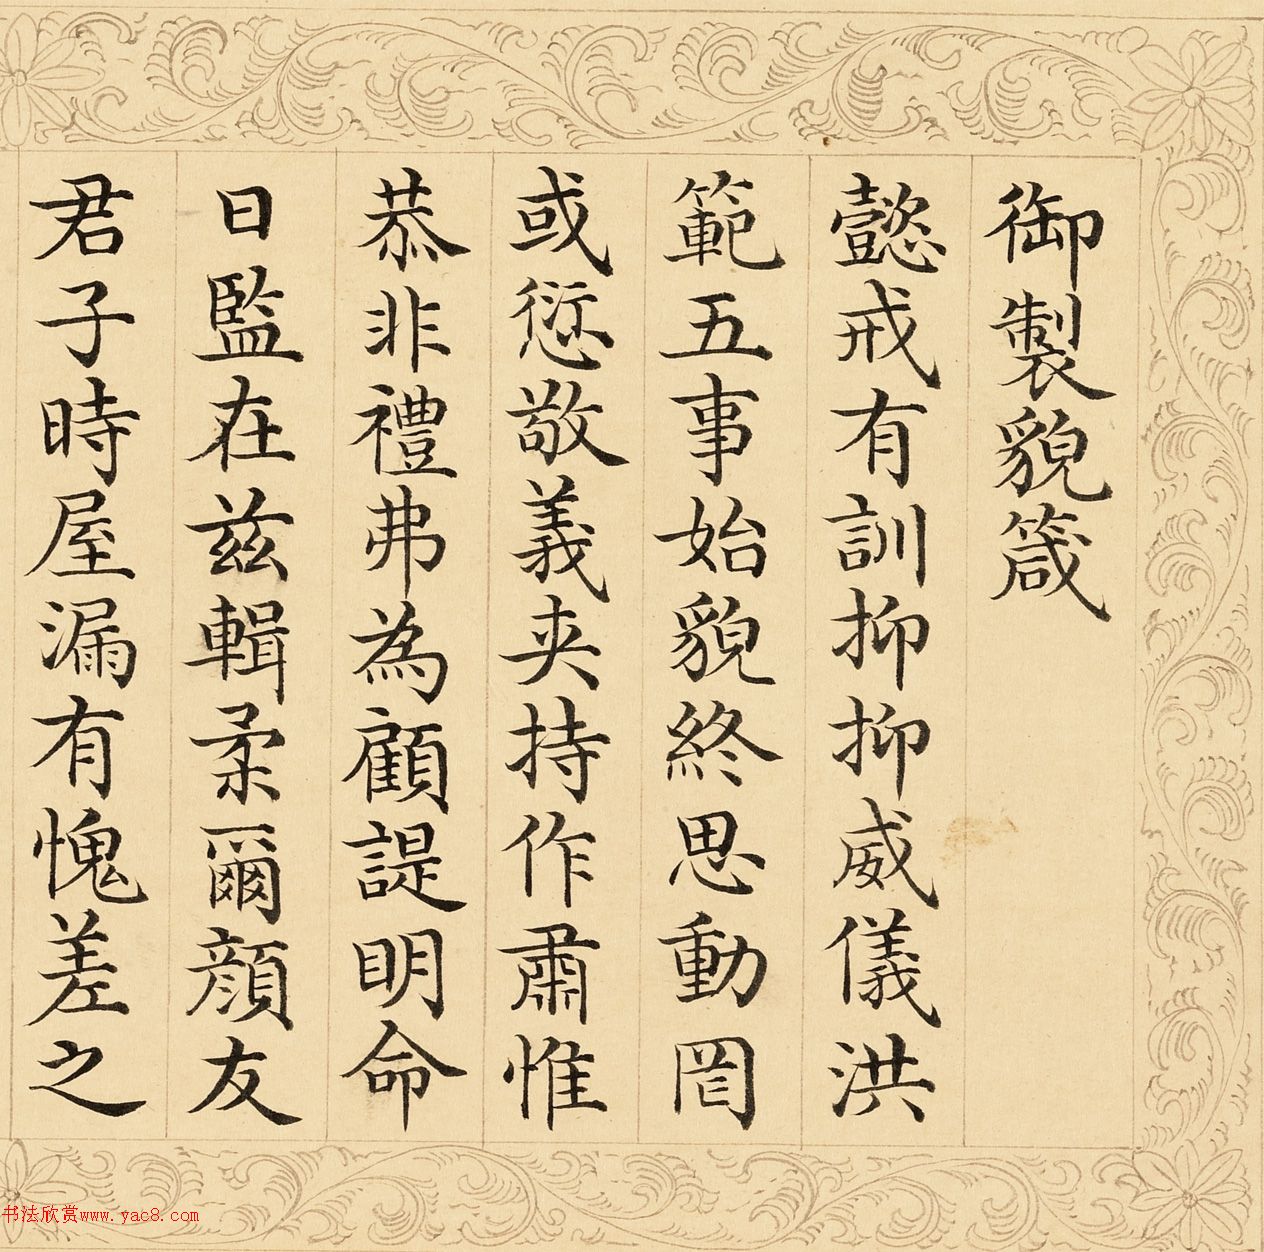 御製貌箴
懿戒有訓抑抑威儀洪
範五事始貌終思動罔
或愆敬義夹持作肅惟
恭非禮弗為顧諟明命
日監在兹輯柔爾顔友
君子時屋漏有愧差之
书法欣赏www.yac8.com